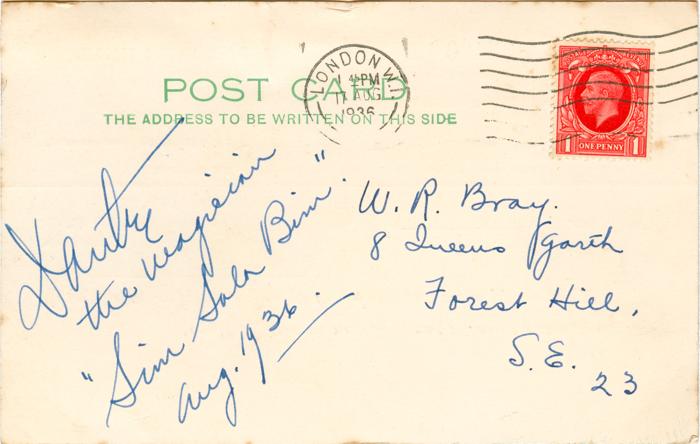 POST CARD
THE ADDRESS TO BE WRITTEN ON THIS SIDE
LONDON W.1
1 PM
11 AUG
1936
ONE PENNY
1 1
Dante
the magician
"Sim Sala Bim".
Aug. 1936.
W. R. Bray.
8 Queens Garth
Forest Hill,
S.E.
23